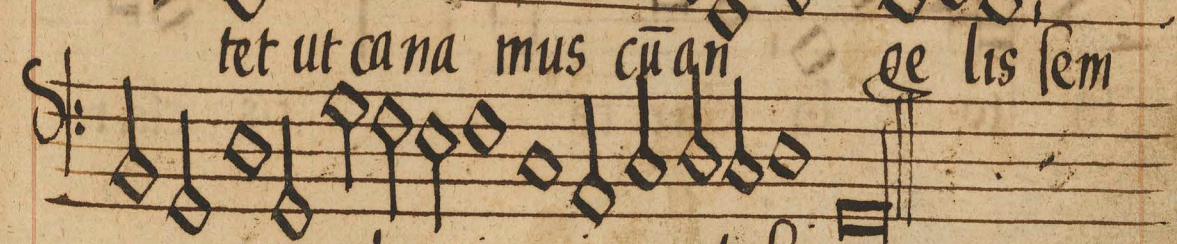 tet ut cana mus cū an ge lis sem